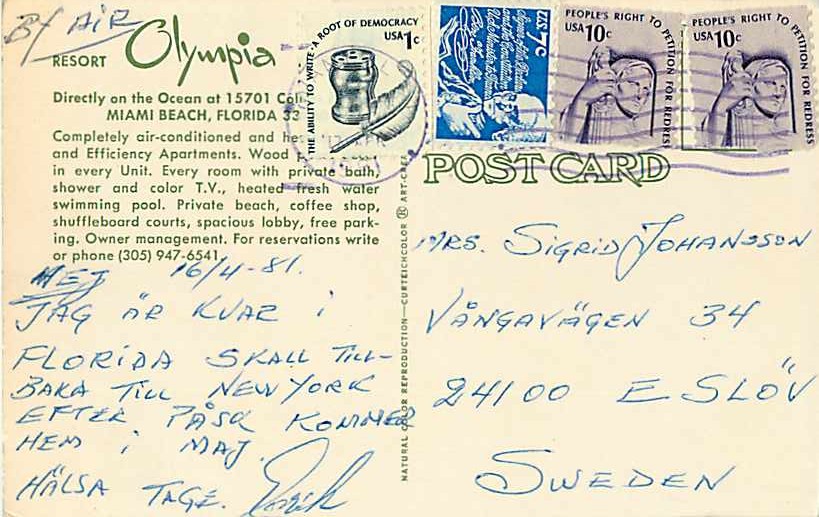 By AIR
RESORT Olympia
Directly on the Ocean at 15701 Coll
MIAMI BEACH, FLORIDA 33
Completely air-conditioned and he
and Efficiency Apartments. Wood
in every Unit. Every room with private bath,
shower and color T.V., heated fresh water
swimming pool. Private beach, coffee shop,
shuffleboard courts, spacious lobby, free park-
ing. Owner management. For reservations write
or phone (305) 947-6541.
HEJ 16/4-81.
JAG ÄR KVAR I
FLORIDA SKALL TILL-
BAKA TILL NEW YORK
EFTER PÅSK KOMMER
HEM I MAJ.
HÄLSA TAGE.
NATURAL COLOR REPRODUCTION—CURTEICHCOLOR ® ART-CREA
THE ABILITY TO WRITE·A ROOT OF DEMOCRACY
USA 1c
USA 7c
PEOPLE'S RIGHT TO PETITION FOR REDRESS
USA 10c
PEOPLE'S RIGHT TO PETITION FOR REDRESS
USA 10c
POST CARD
MRS. SIGRID JOHANSSON
VÅNGAVÄGEN 34
24100 ESLÖV
SWEDEN